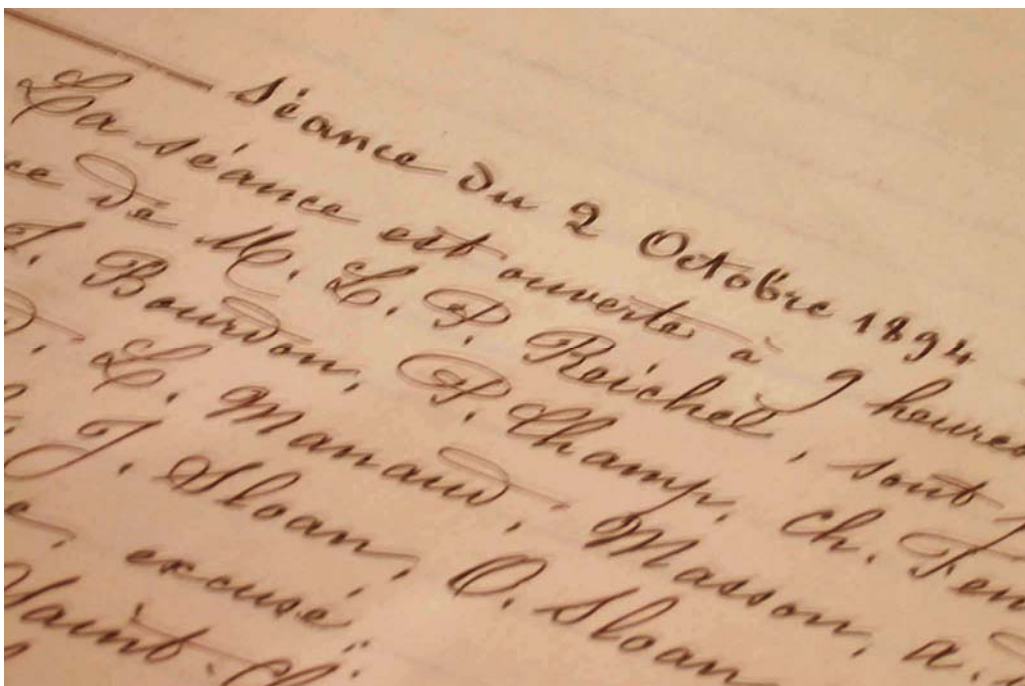 Séance du 2 Octobre 1894
La séance est ouverte à 9 heures
ce de M. L. P. Reichel, sont
J. Bourdon, P. Champ, Ch. Fen
D. L. Manaud, Masson, A.
J. Sloan, O. Sloan
excusé.
Saint-Cl